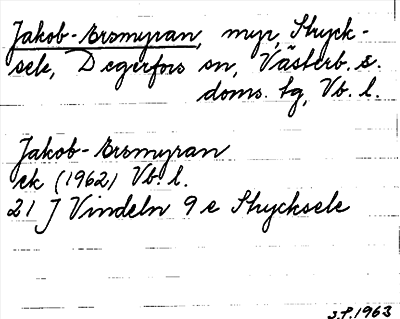 Jakob-Ersmyran, myr, Stryck-
sele, Degerfors sn, Västerb. s.
doms. tg, Vb. l.
Jakob-Ersmyran
ek (1962) Vb. l.
21 J Vindeln 9 e Strycksele
J.P. 1963